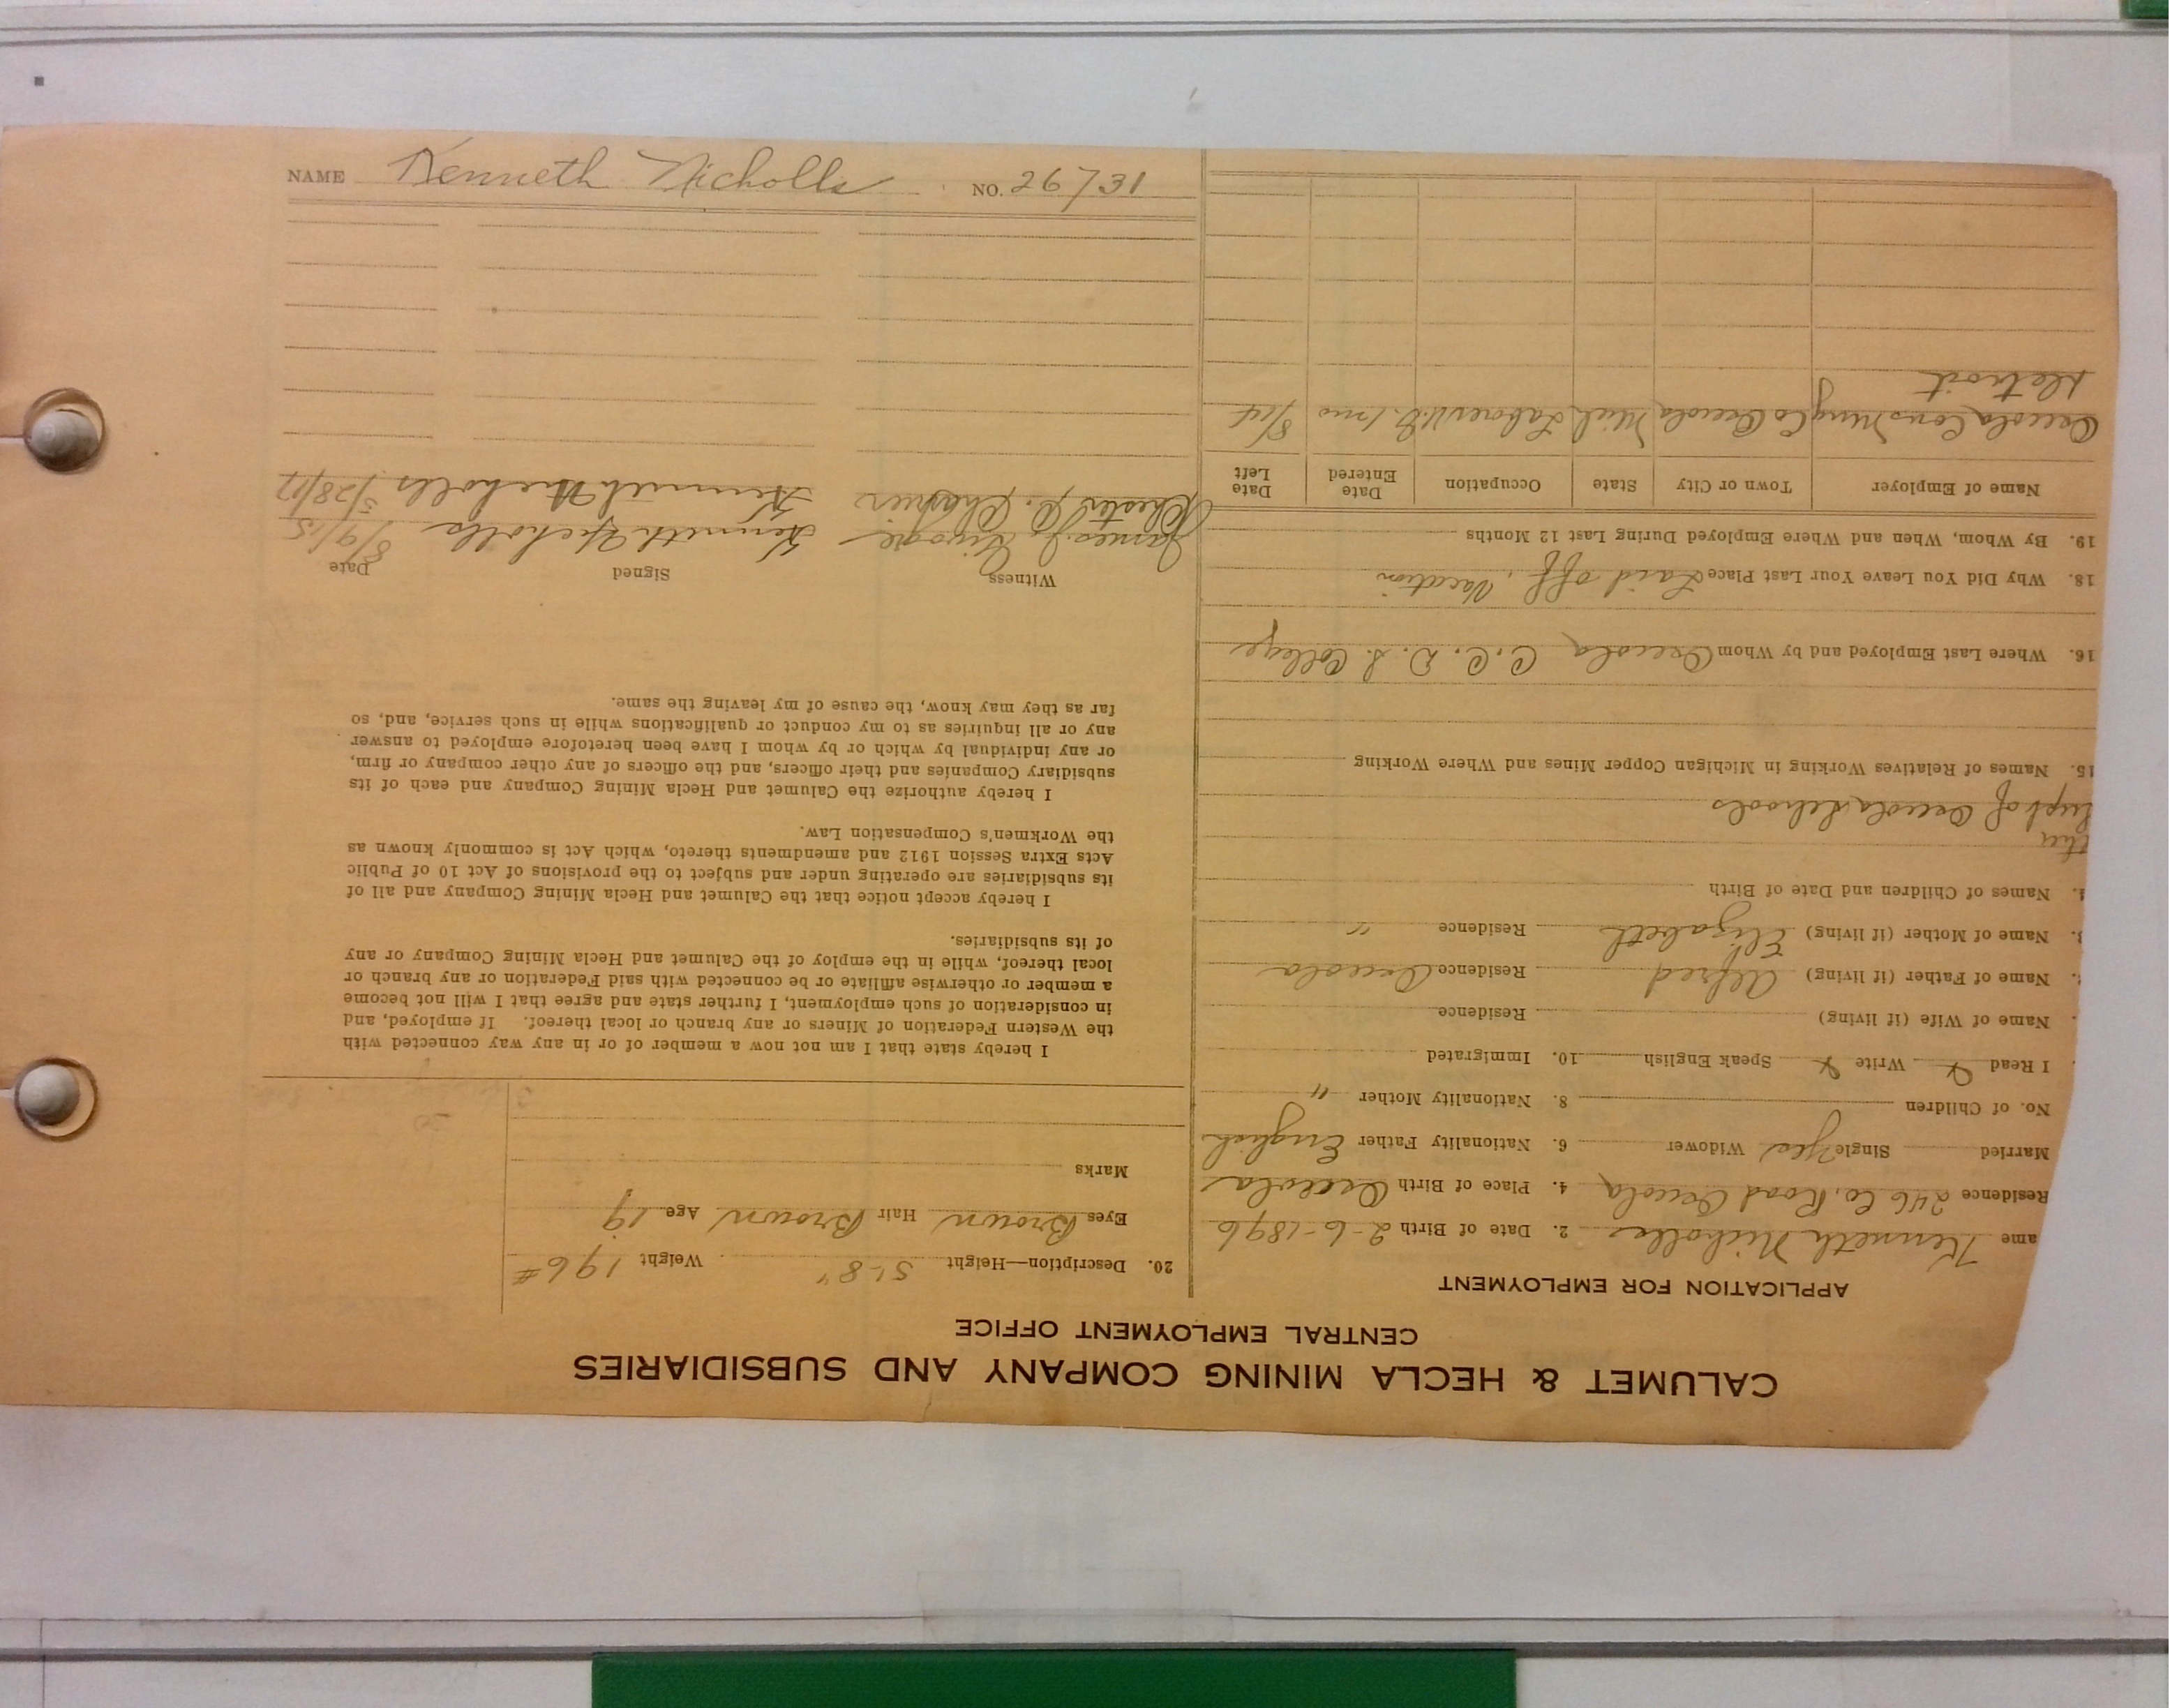 CALUMET & HECLA MINING COMPANY AND SUBSIDIARIES
CENTRAL EMPLOYMENT OFFICE
APPLICATION FOR EMPLOYMENT
ame Kenneth Nicholls 2. Date of Birth 2-6-1896
Residence 246 Co. Road Osceola 4. Place of Birth Osceola
Married Single Yes Widower 6. Nationality Father English
No. of Children 8. Nationality Mother "
I Read Write Speak English 10. Immigrated
Name of Wife (if living) Residence
Name of Father (if living) Alfred Residence Osceola
3. Name of Mother (if living) Elizabeth Residence "
4. Names of Children and Date of Birth
ther
Supt of Osceola Schools
15. Names of Relatives Working in Michigan Copper Mines and Where Working
16. Where Last Employed and by Whom Osceola C. C. D. S. College
18. Why Did You Leave Your Last Place Laid off, Vacation
19. By Whom, When and Where Employed During Last 12 Months
Name of Employer Town or City State Occupation Date Entered Date Left
Osceola Cons Mng Co Osceola Mich Laborer 1 mo 8/14
Detroit
20. Description—Height 5'-8" Weight 196#
Eyes Brown Hair Brown Age 19
Marks
I hereby state that I am not now a member of or in any way connected with
the Western Federation of Miners or any branch or local thereof. If employed, and
in consideration of such employment, I further state and agree that I will not become
a member or otherwise affiliate or be connected with said Federation or any branch or
local thereof, while in the employ of the Calumet and Hecla Mining Company or any
of its subsidiaries.
I hereby accept notice that the Calumet and Hecla Mining Company and all of
its subsidiaries are operating under and subject to the provisions of Act 10 of Public
Acts Extra Session 1912 and amendments thereto, which Act is commonly known as
the Workmen's Compensation Law.
I hereby authorize the Calumet and Hecla Mining Company and each of its
subsidiary Companies and their officers, and the officers of any other company or firm,
or any individual by which or by whom I have been heretofore employed to answer
any or all inquiries as to my conduct or qualifications while in such service, and, so
far as they may know, the cause of my leaving the same.
Witness Signed Date
James J. Kenneth Nicholls 8/9/15
Chester Kenneth Nicholls 3/28/17
NAME Kenneth Nicholls NO. 26731